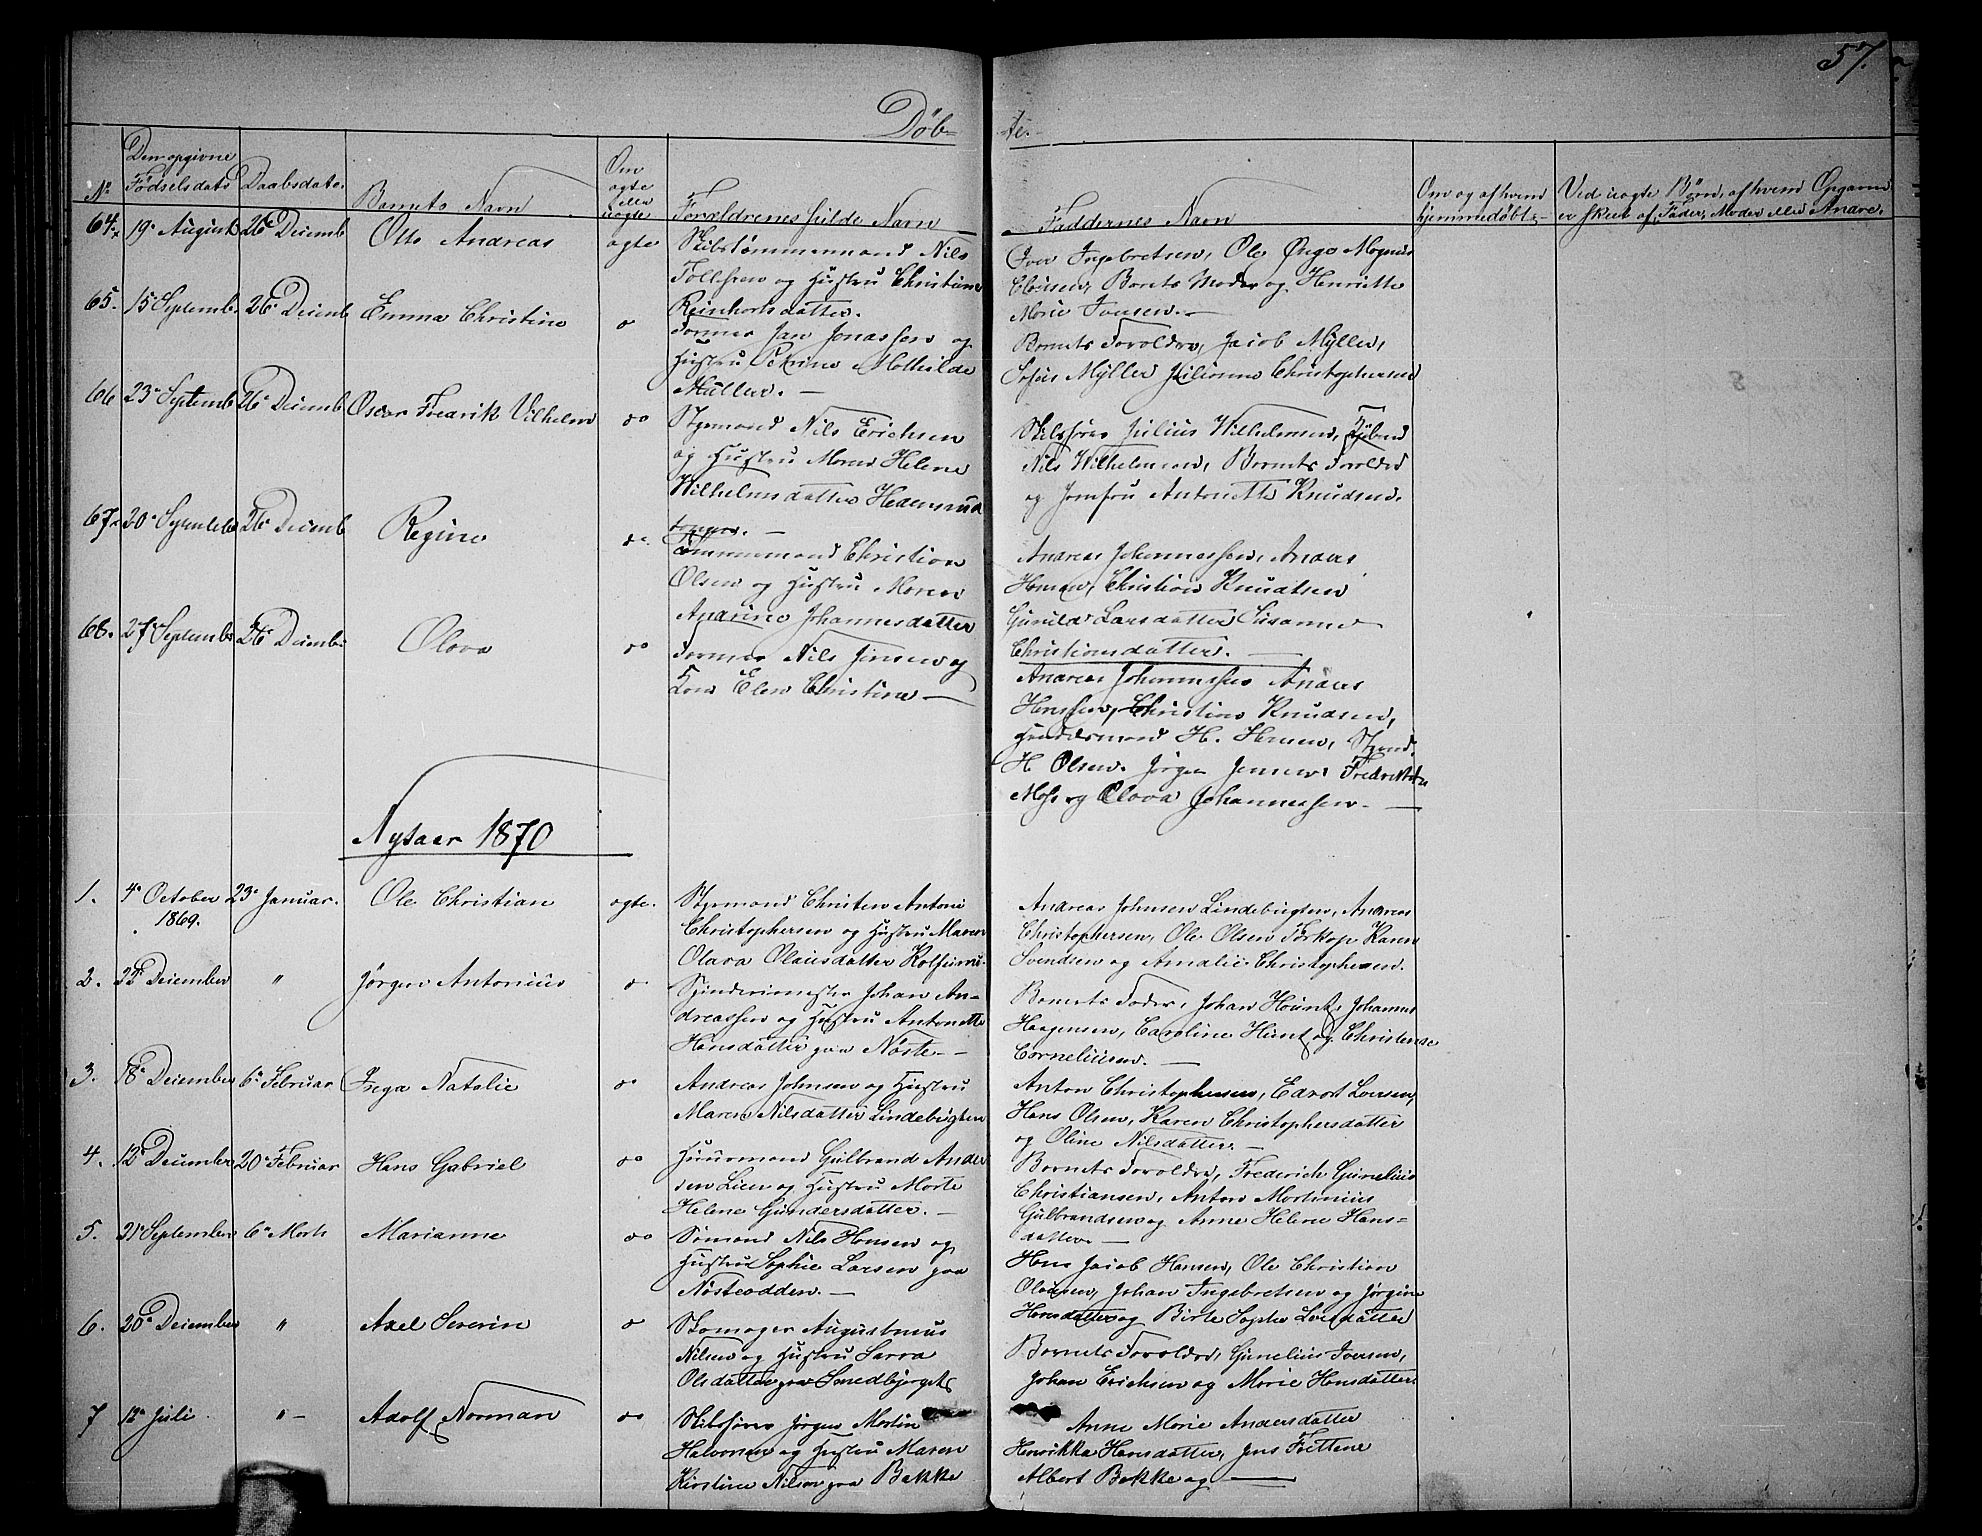 57.
Døb- te.
No
Den opgivne
Fødselsdato
Daabsdato.
Barnets Navn
Om
ægte
eller
uægte
Forældrenes fulde Navn
Faddernes Navn
Om og af hvem
hjemmedøbt.
Ved uægte Børn, af hvem Opgaven
er skeet af, Fader, Moder eller Andre.
64. 19 August 26 Decemb Otto Andreas ægte
Skibstømmermand Nils
Tollefsen og Hustru Christine
Reinhortsdatter.
Iver Ingebretsen, Ole Magnus
Olausen, Barnets Moder og Henriette
Marie Iversen.
65. 15 Septemb. 26 Decemb Emma Christine do
Former Jan Jonassen og
Hustru Petrine Mathilde
Müller.
Barnets Forældre, Jacob Mÿller,
Sofus Mÿller Juliane Christophersen
66 23 Septemb 26 Decemb Oscar Fredrik Vilhelm do
Styrmand Nils Erichsen
og Hustru Maren Helene
Wilhelmsdatter
Skibsfører Julius Wilhelmsen,
Nils Wilhelmsen, Barnets Forældre
og Jomfru Antonette Knudsen.
67. 20 Septembr 26 Decemb Regine do
Tømmermand Christian
Olsen og Hustru Maren
Andrine Johannesdatter
Andreas Johannessen, Anders
Hansen, Christian Knudtsen
Gunild Larsdatter Susanne
Christiansdatter.
68. 27 Septembr 26 Decemb. Olava do
Former Nils Jensen og
Kone Elen Christine
Andreas Johannessen Anders
Hanssen, Christian Knudsen,
H. Hansen, Styrmd.
H Olsen. Jørgen Jensen, Fredrikke
Moss og Olava Johannessen.
Nytaar 1870
1. 4 October 23 Januar. Ole Christian ægte.
1869.
Styrmand Christen Antoni
Christophersen og Hustru Maren
Olava Olausdatter
Andreas Johnsen Lindebugten, Andreas
Christophersen, Ole Olsen Torkop Karen
Svendsen og Amalie Christophersen.
2. 22 December " Jørgen Antonius do
Spinderimester Johan An-
dreassen og Hustru Antonette
Hansdatter paa Nøste
Barnets Fader, Johan Hount, Johannes
Haagensen, Caroline Hunt og Christense
Corneliusen.
3. 18 December 6 Februar Inga Natalie do
Andreas Johnsen og Hustru
Maren Nilsdatter Lindebugten
Anton Christophersen, Edvart Iversen,
Hans Olsen, Karen Christophersdatter
og Oline Nilsdatter.
4. 12 December 20 Februar Hans Gabriel do
Huusmand Gulbrand Ander
sen Lien og Hustru Marte
Helene Gundersdatter.
Barnets Forældre, Frederich Gunelius
Christiansen, Anton Martinius
Gulbrandsen og Anne Helene Hans-
datter.
5. 21 September 6 Marts Marianne do
Sømand Nils Hansen og
Hustru Sophie Larsen paa
Nøsteodden.
Hans Jacob Hansen, Ole Christian
Olausen, Johan Ingebretsen og Jørgine
Hansdatter og Birte Sophie Larsdatter
6. 20 December " Axel Severin do
Skomager Augustinius
Nilsen og Hustru Sarra
Olsdatter paa Smedbjerget
Barnets Forældre, Gunelius Iversen,
Johan Erichsen og Marie Hansdatter.
7 12 Juli " Adolf Norman do
Skibsfører Jørgen Martin
Halvorsen og Hustru Maren
Kirstine Nilsen paa Bakke
Anne Marie Andersdatter
Henrikka Hansdatter, Jens Frettene
Albert Bakke og